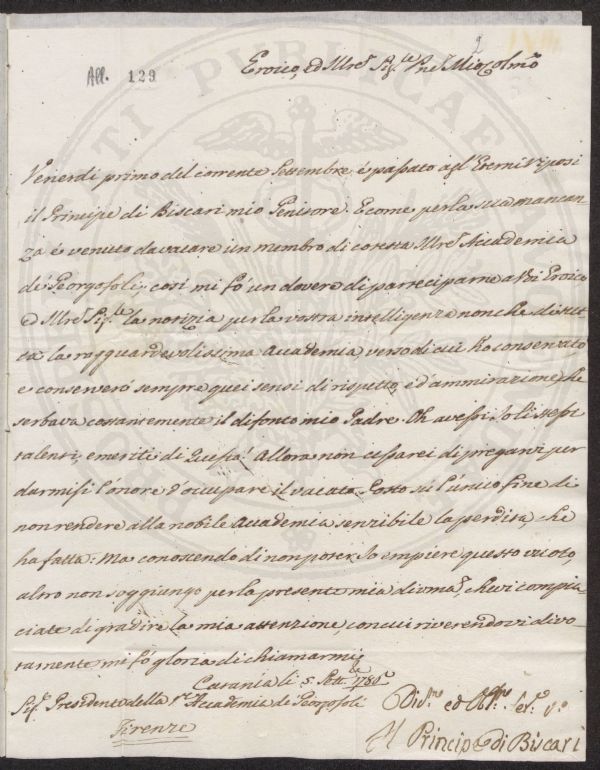 All. 129
2
Eroico, ed Illre Sigre Pne Mio Colmo
Venerdì primo del corrente Settembre é passato agl'Eterni riposi
il Principe di Biscari mio Genitore. E come per la sua mancan-
za é venuto da vacare un membro di cotesta Illre Accademia
de' Georgofoli; così mi fó un dovere di parteciparne a Voi Eroico
ed Illre Sigre la notizia per la vostra intelligenza non che di tut-
ta la ragguardevolissima Accademia verso di cui ho conservato
e conserveró sempre quei sensi di rispetto, e d'ammirazione, che
serbava costantemente il difonto mio Padre. Oh avessi Io li stessi
talenti, e meriti di Questo! Allora non cessarei di pregarvi per
darmisi l'onore d'occupare il vacato Posto sul l'unico fine di
non rendere alla nobile Accademia senzibile la perdita, che
ha fatta: Ma conoscendo di non poter Io empiere questo vuoto,
altro non soggiungo per la presente mia, che vi compia-
ciate di gradire la mia attenzione, con cui riverendovi divo-
tamente mi fó gloria di chiamarmi
Catania li 5 Sett. 1786
Sigr Presidente della Rle Accademia de Georgofoli
Firenze
Divmo ed Obbmo Servre Vo
Il Principe di Biscari
PUBLICAE